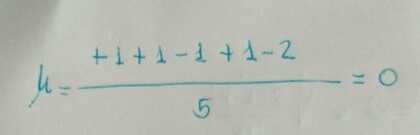 μ = +1 +1 -1 +1 -2 / 5 = 0